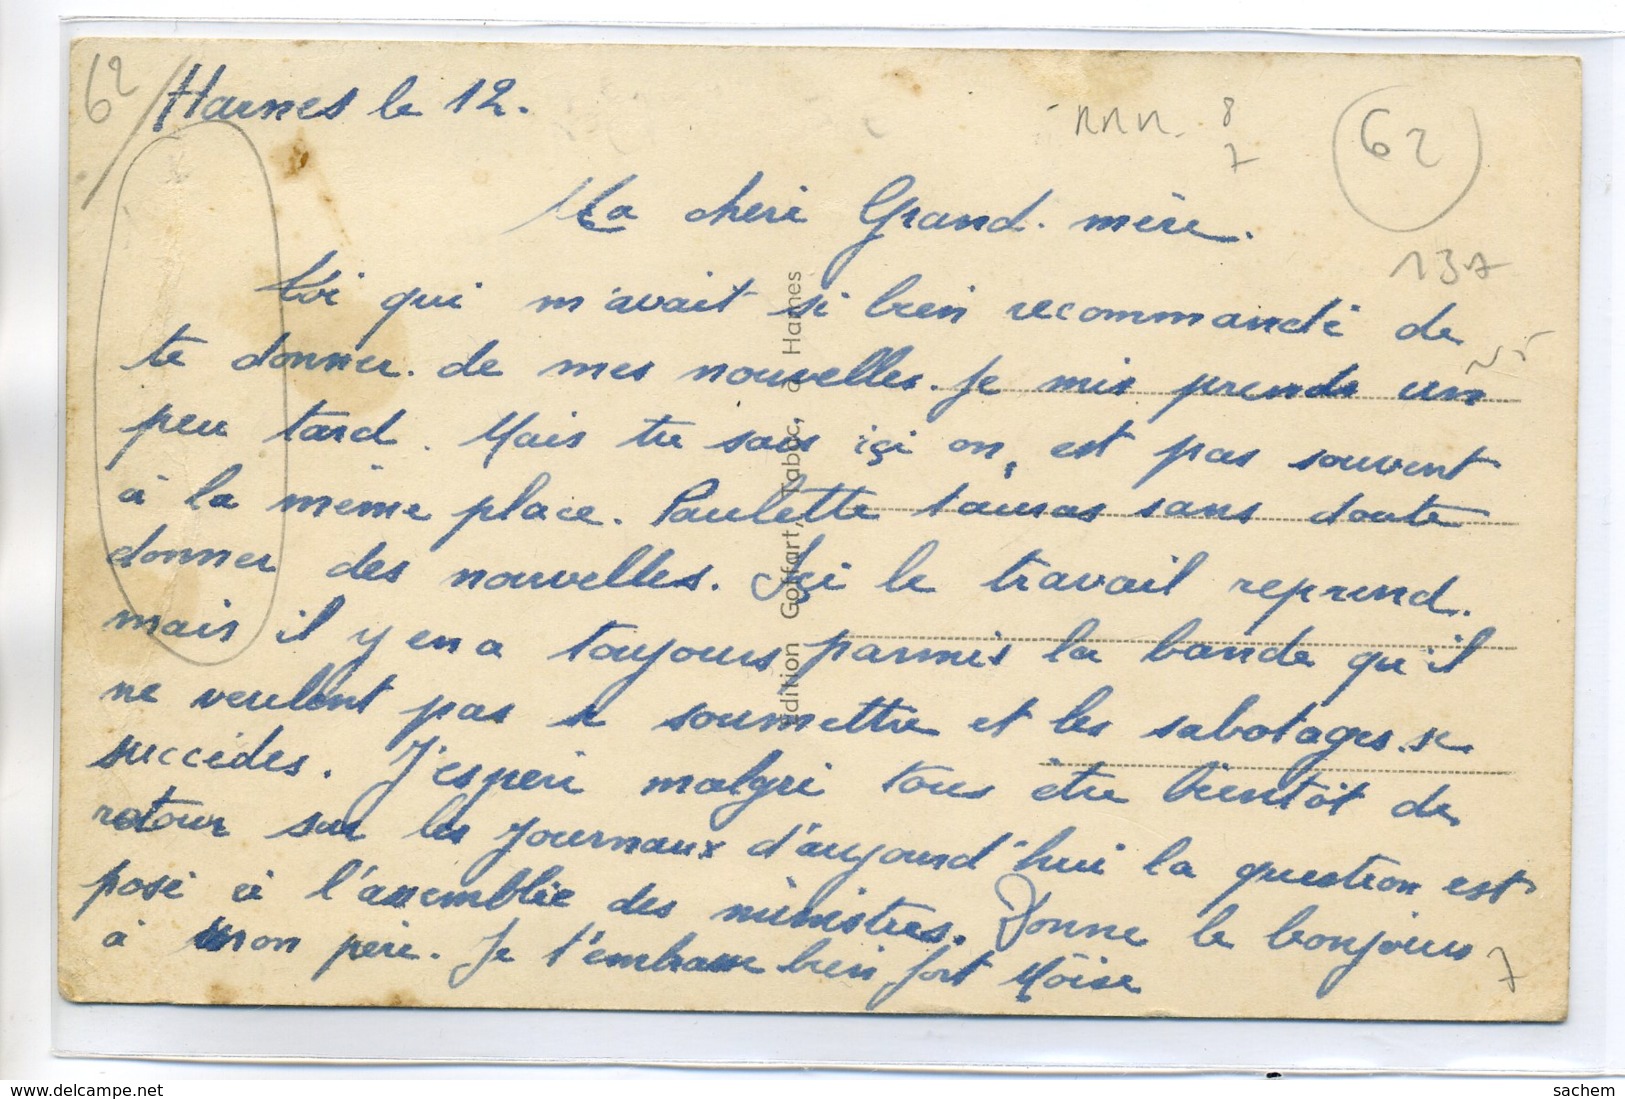 62
Harnes le 12.
nnn. 8
7
62
137
Ma cheri Grand. mère.
Toi qui m'avait si bien recommandé de
te donner. de mes nouvelles. Je mis prends un
peu tard. Mais tu sais içi on, est pas souvent
à la même place. Paulette t'auras sans doute
donner des nouvelles. Içi le travail reprend.
mais il y en a toujours parmis la bande qu'il
ne veulent pas se soumettre et les sabotages. se
succédes. J'esperé malgré tous être bientôt de
retour sur les journaux d'aujourd'hui la question est
posé à l'assemblée des ministres. Donne le bonjour
à mon père. Je t'embrasse bien fort Moise
7
Edition Goffart, Tabac, à Harnes
www.delcampe.net
sachem